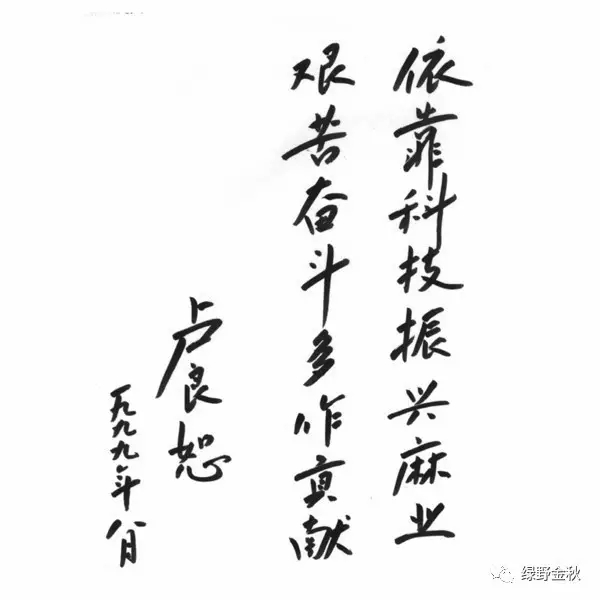 依靠科技振兴麻业
艰苦奋斗多作贡献
卢良恕
一九九九年八月
绿野金秋